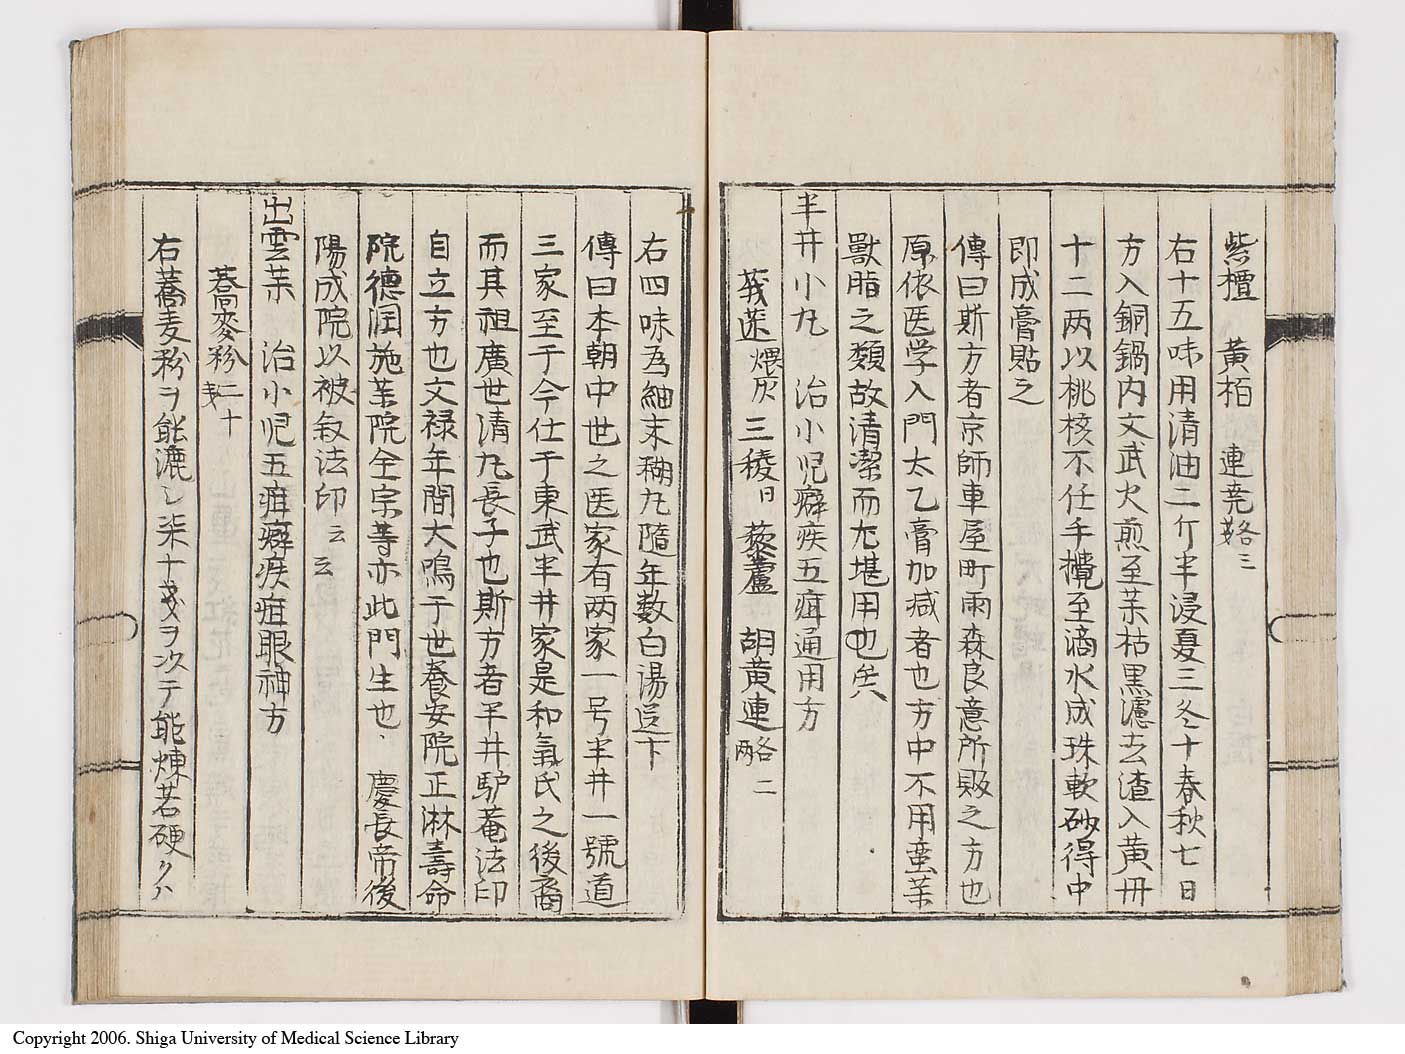 紫檀　黄栢　連尭各三
右十五味用清油二斤半浸夏三冬十春秋七日
方入銅鍋内文武火煎至茉枯黒濾去渣入黄冊
十二両以桃核不住手攪至滴水成珠軟砂得中
即成膏貼之
傳曰斯方者京師車屋町雨森良意所販之方也
原依医学入門太乙膏加减者也方中不用蛮茉
獣脂之類故清潔而尤堪用也矣
半井小丸　治小児癖疾五疳通用方
莪蒁煨灰　三稜日　藜蘆　胡黄連各二
右四味為細末糊丸随年数白湯送下
傳曰本朝中世之医家有両家一号半井一號道
三家至于今仕于東武半井家是和氣氏之後裔
而其祖廣世清丸長子也斯方者半井驢菴法印
自立方也文禄年間大鳴于世養安院正淋壽命
院德潤施茉院全宗等亦此門生也慶長帝後
陽成院以被叙法印云云
出雲茉　治小児五疳癖疾疳眼神方
蕎麥粉二十戔
右蕎麦粉ヲ能漉シ柒十戔ヲ次テ能煉若硬クハ
Copyright 2006. Shiga University of Medical Science Library